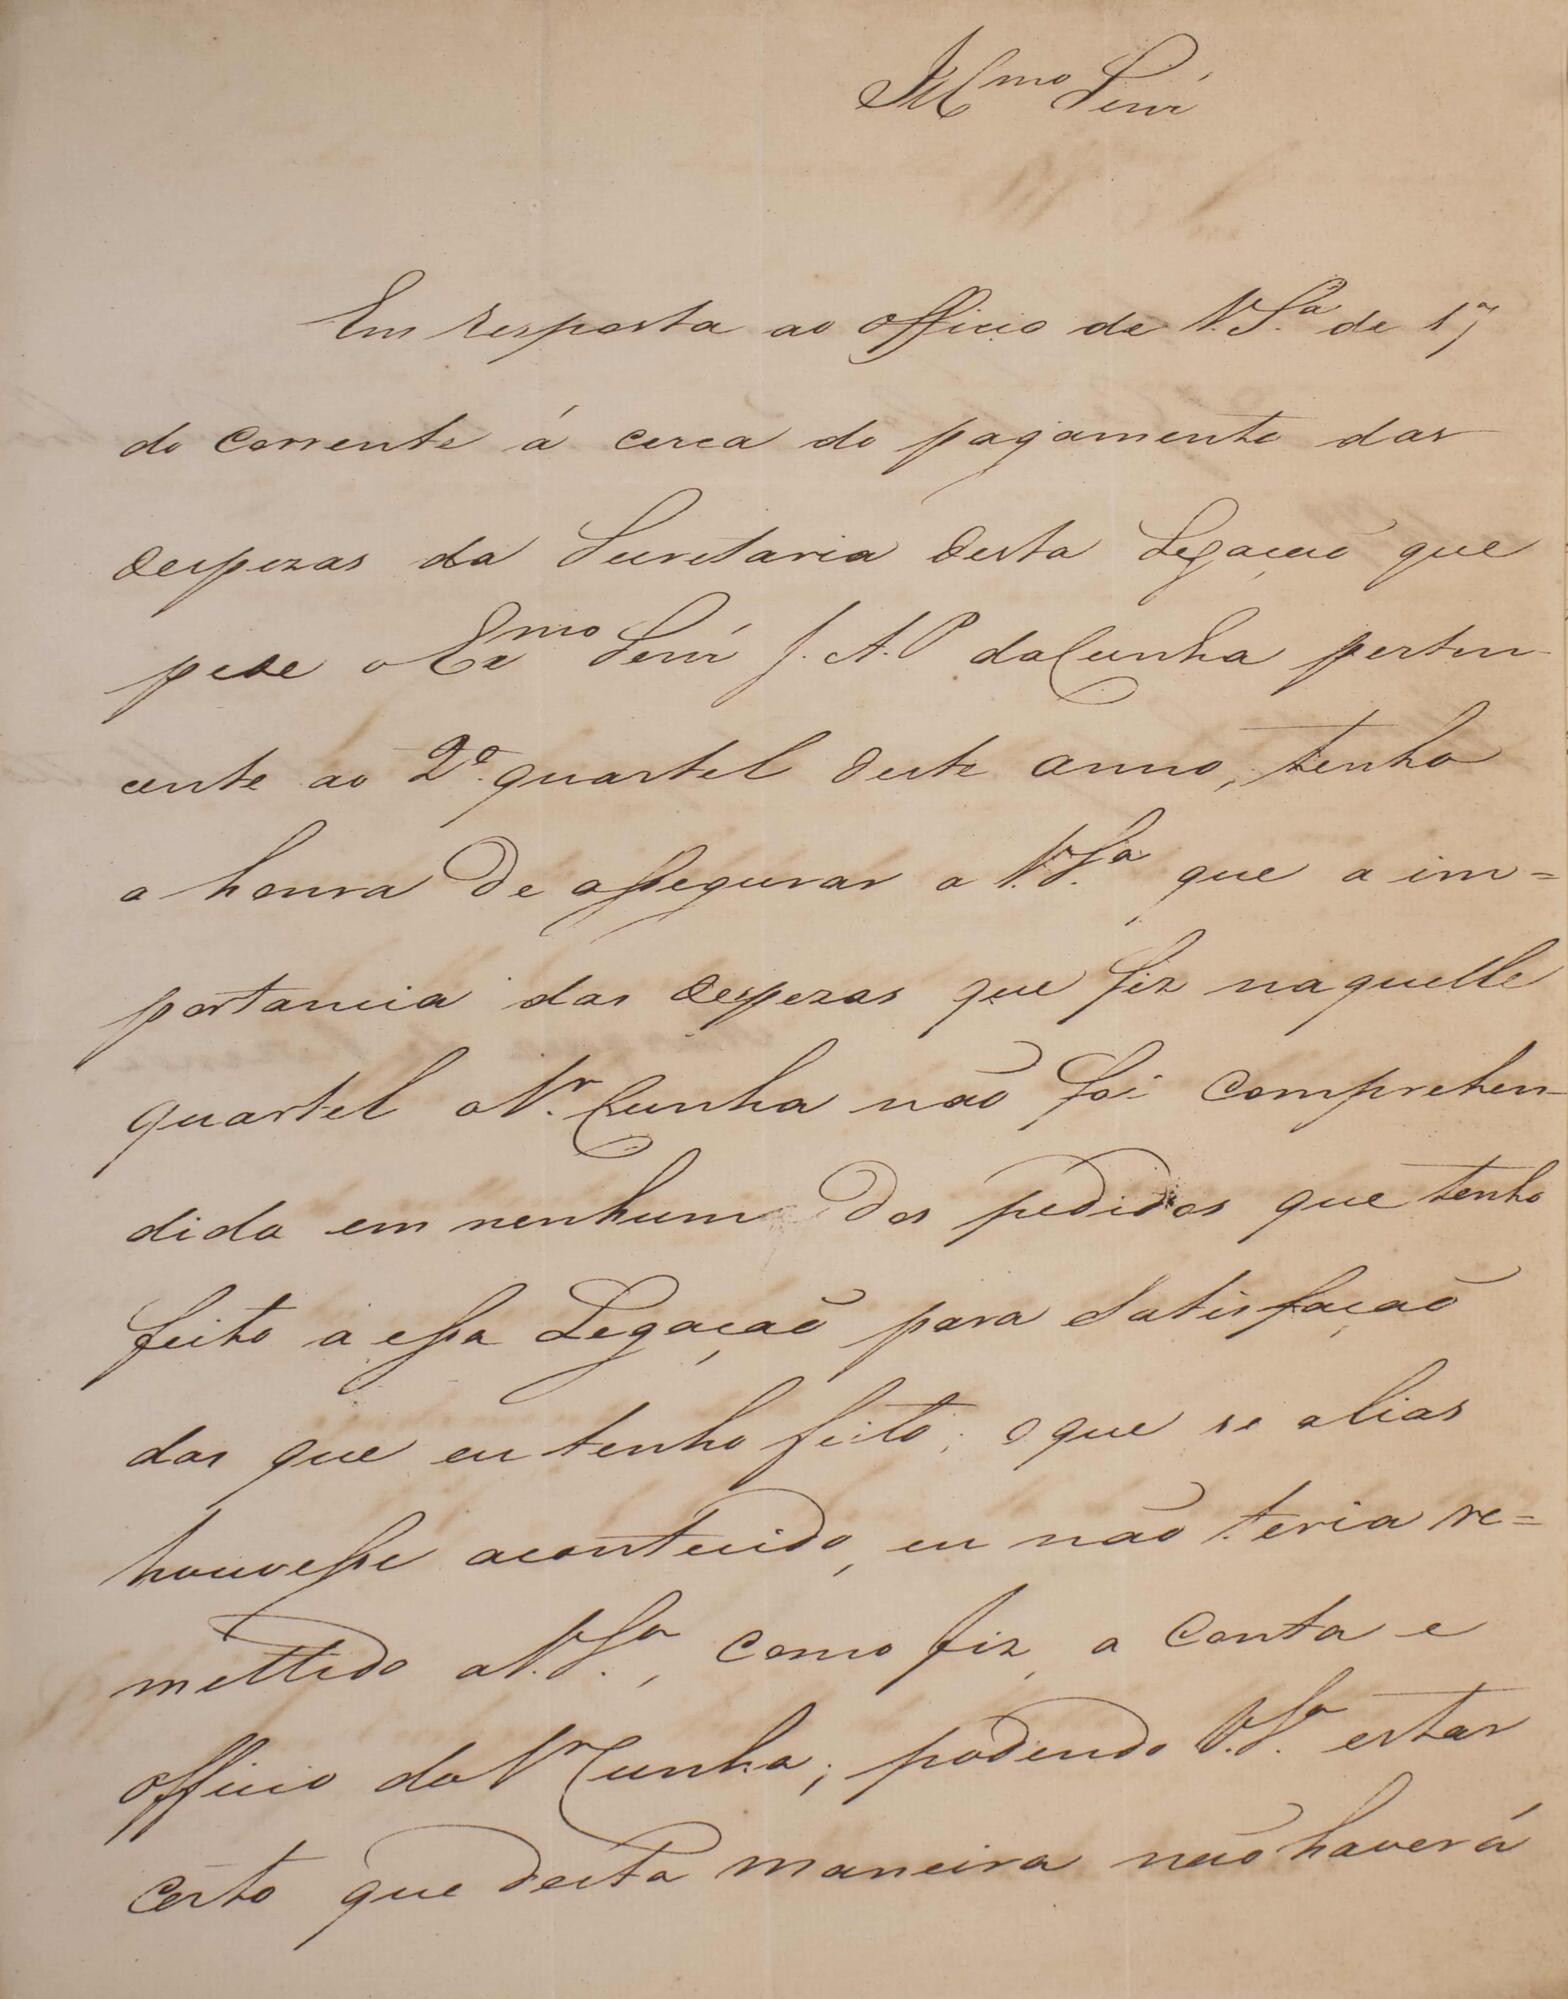 Ill.mo Senr
Em resposta ao officio de V.S.a de 17
do corrente á cerca do pagamento das
despezas da Secretaria desta Legação que
pede o Ex.mo Senr J. A. P. da Cunha perten-
cente ao 2.º quartel deste anno, tenho
a honra de assegurar a V.S.a que a im=
portancia das despezas que fez naquelle
quartel o Sr. Cunha não foi comprehen-
dida em nenhum dos pedidos que tenho
feito a essa Legação para satisfação
das que eu tenho feito; o que se alias
houvesse acontecido, eu não teria re=
mettido a V.S.a, como fiz, a conta e
officio do Sr Cunha; podendo V.S.a estar
certo que desta maneira não haverá